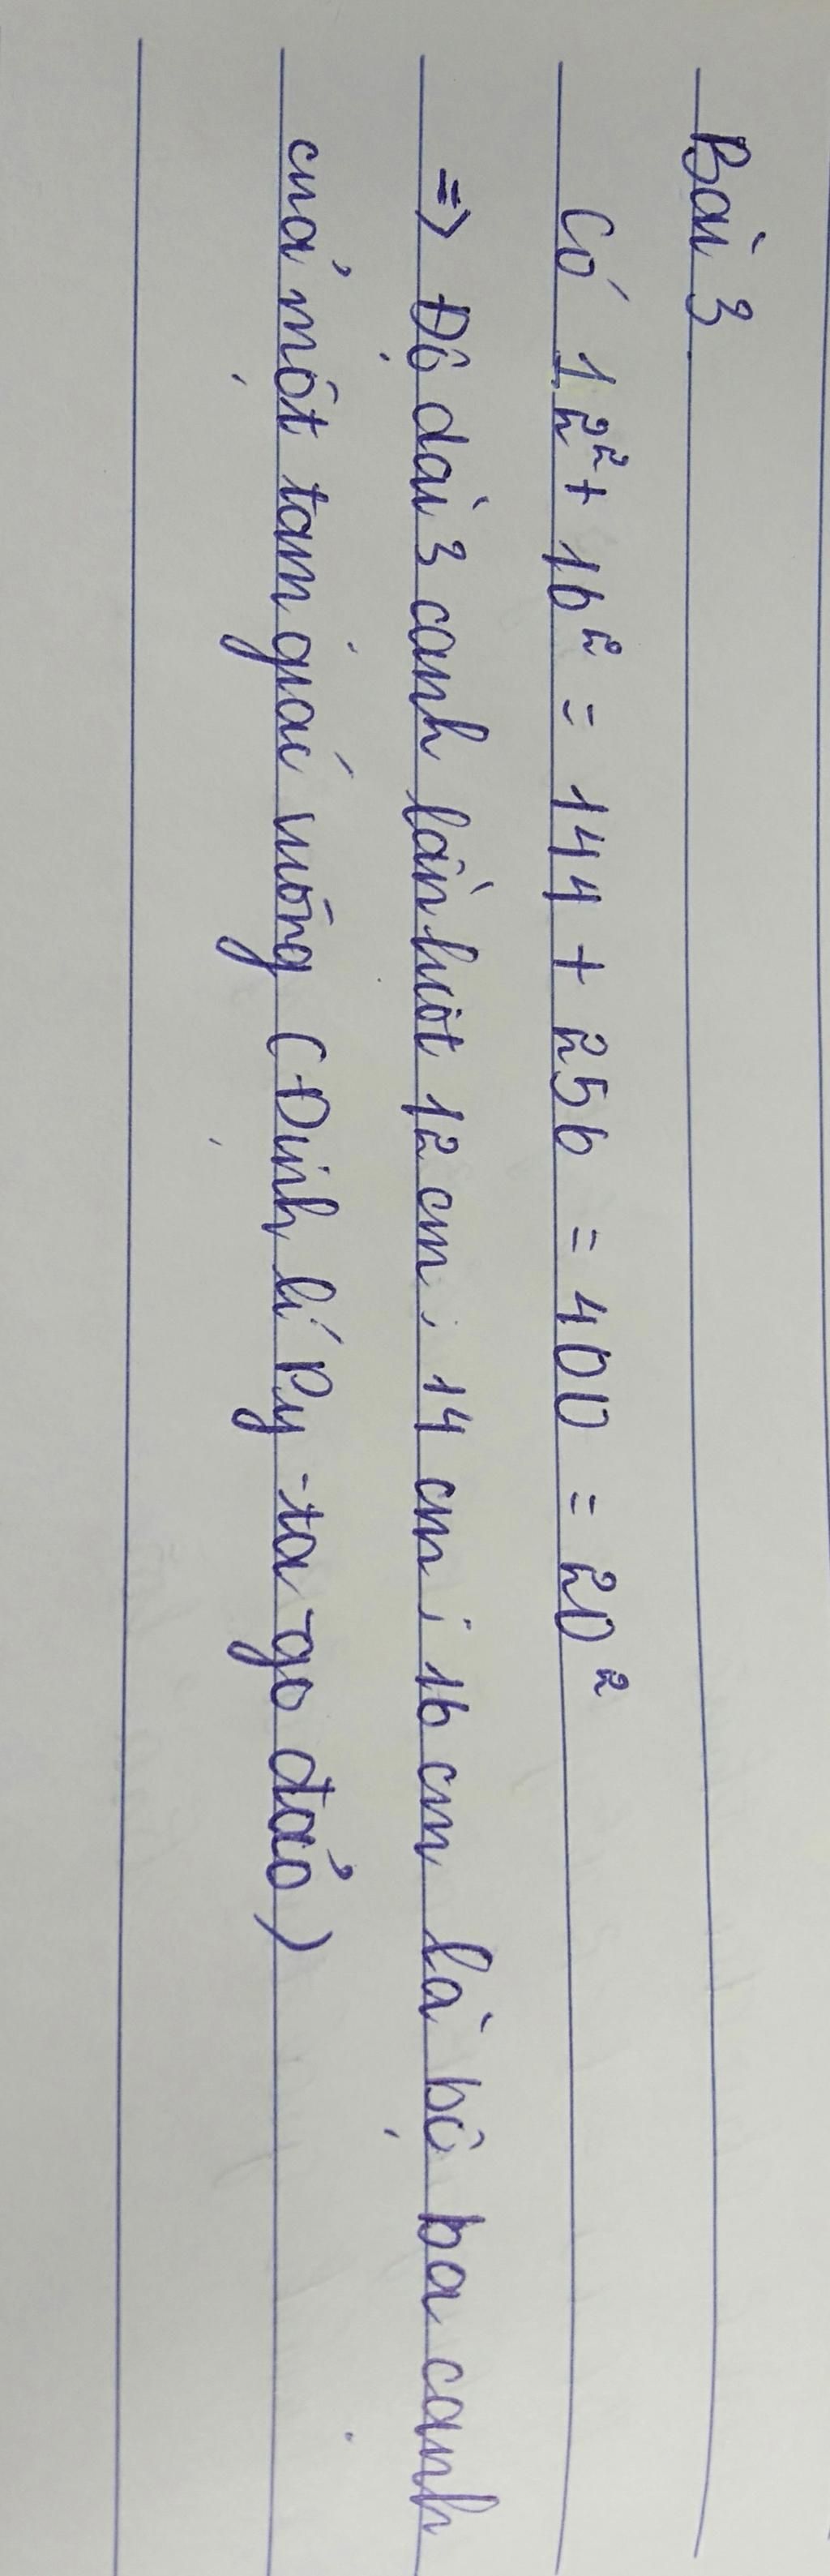 Bài 3
Có 12² + 16² = 144 + 256 = 400 = 20²
=> Độ dài 3 cạnh lần lượt 12 cm ; 14 cm ; 16 cm là bộ ba cạnh
của một tam giác vuông (Định lí Py-ta-go đảo)